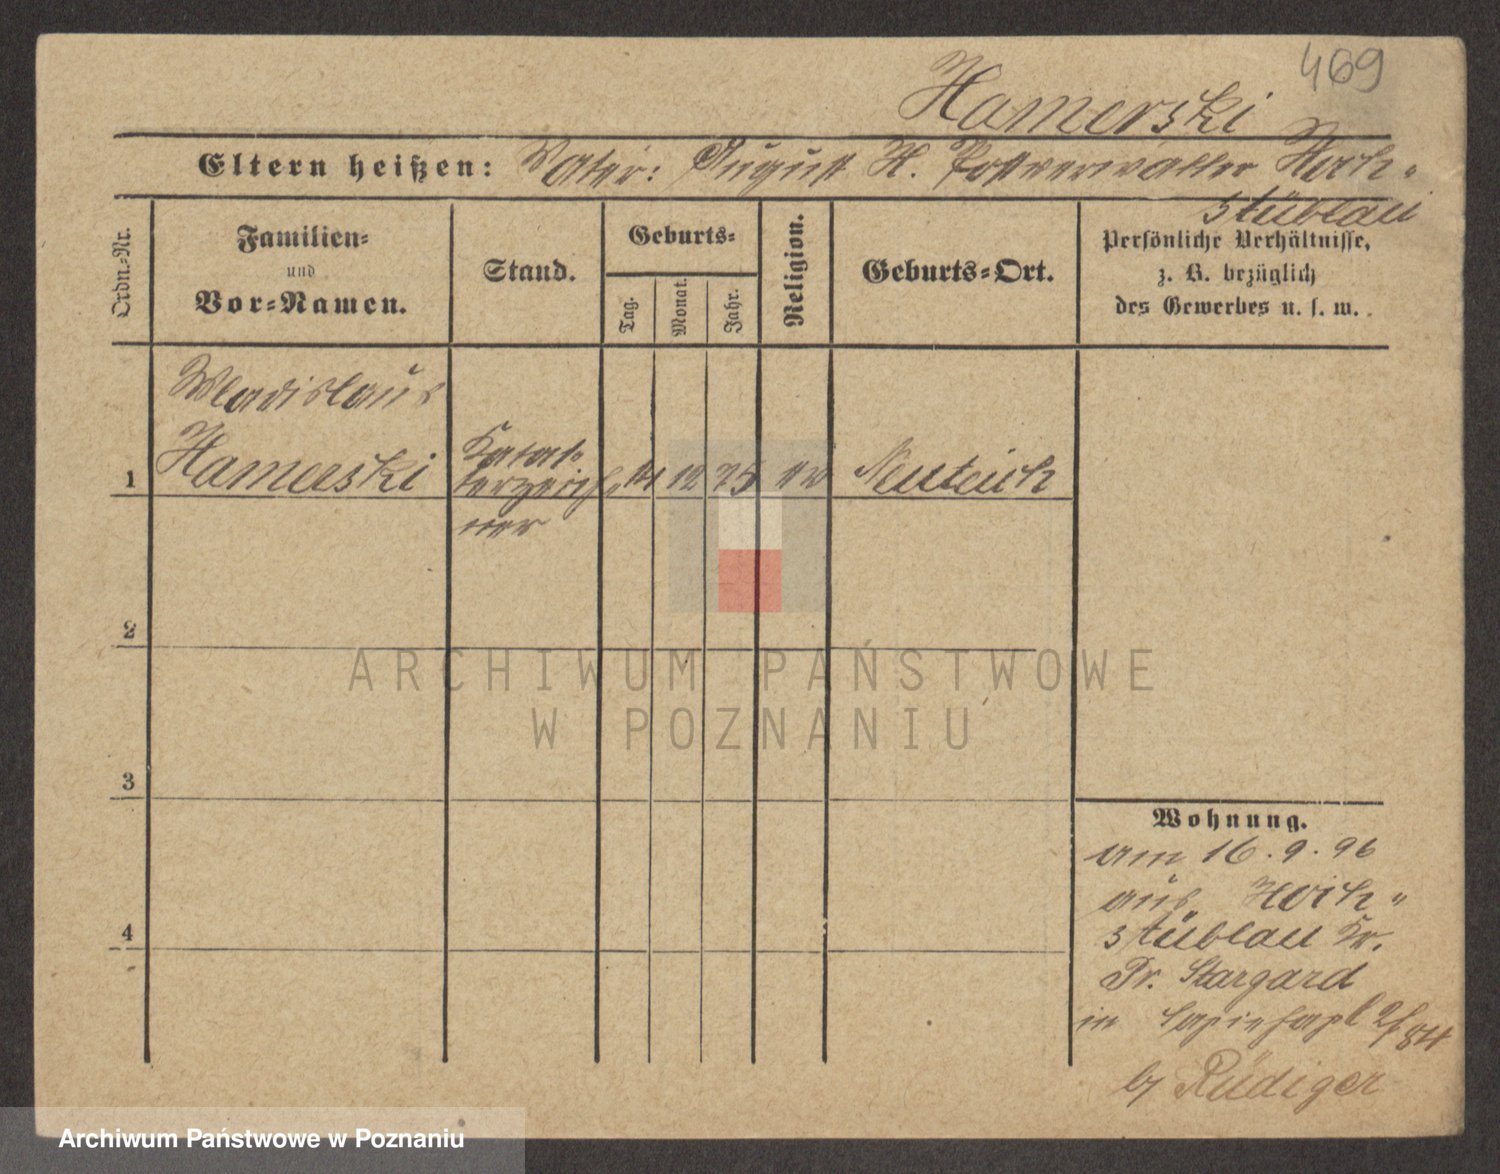 469
Hamerski
Eltern heißen: Vater: August H. Postverwalter Hoch-
stüblau
Ordn.-Nr.
Familien-
und
Vor-Namen.
Stand.
Geburts-
Tag.
Monat.
Jahr.
Religion.
Geburts-Ort.
Persönliche Verhältnisse,
z. B. bezüglich
des Gewerbes u. s. w.
Wladislaus
1 Hamerski Katas- 12 75 Neuteich
terzeich-
ner
2
3
4
Wohnung.
am 16.9.96
aus Hoch-
stüblau Kr.
Pr. Stargard
in Sapiehapl
b/ Rüdiger
ARCHIWUM PAŃSTWOWE
W POZNANIU
Archiwum Państwowe w Poznaniu